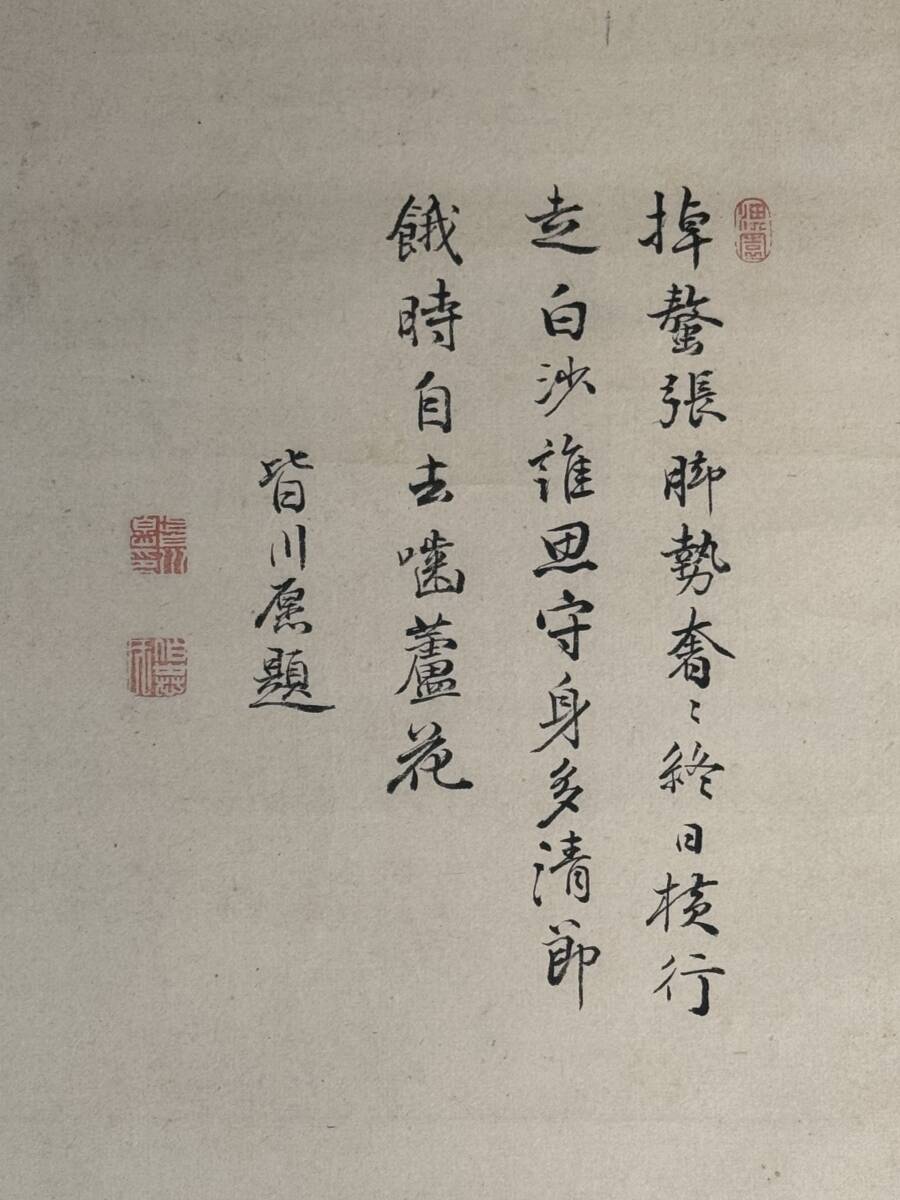 掉螯張脚勢奢〻終日横行
走白沙誰思守身多清節
餓時自去噛蘆花
皆川愿題